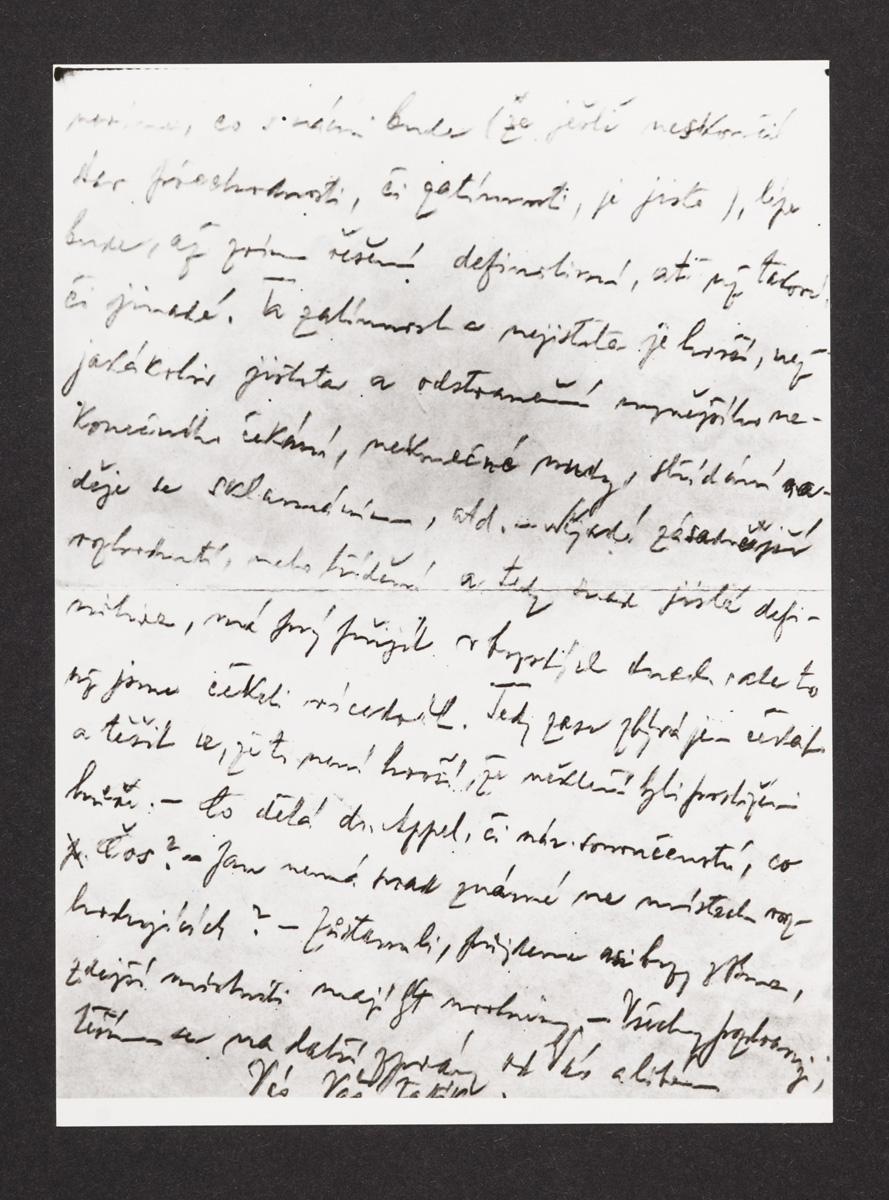 co s námi bude (že ještě neskončil
stav přechodnosti, či zatímnosti, je jisto), lépe
bude, až přijde řešení definitivní, ať již takové
či jinaké. Ta zatímnost a nejistota je horší, než
jakákoliv jistota a odstranění nynějšího ne-
konečného čekání, nekonečné nudy, střídání na-
děje se zklamáním, atd. – Nějaké zásadnější
rozhodnutí, nebo třídění a tedy snad jisté defi-
nitivum, má prý přijít v brzkých dnech, ale to
již jsme čekali vícekrát. Tedy zase zbývá jen čekat
a těšit se, že to není horší, že někteří byli postiženi
hůře. – Co dělá dr. Appel, či náš co
p. Čos? – Jan nemá snad známé na místech roz-
hodujících? – Zůstanu-li, přijdeme asi brzy
zdejší místnosti mají být – Všechny pozdravuji,
těším se na další zprávy od Vás a líbám
Vás Váš Tatík.